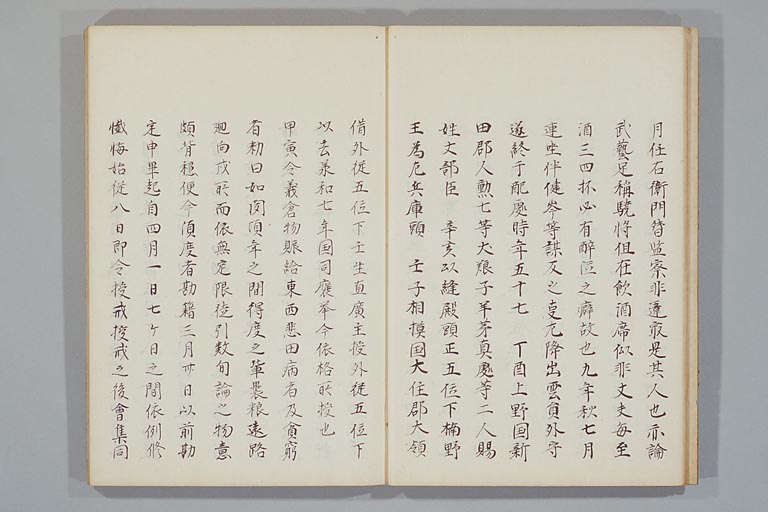 月任右衛門督監察非違最是其人也亦論
武藝足称驍将但在飲酒席似非丈夫毎至
酒三四杯必有醉泣之癖故也九年秋七月
連坐伴健岑等謀反之事左降出雲員外守
遂終于配處時年五十七 丁酉上野国新
田郡人勲七等犬娘子羊芽真慶等二人賜
姓丈部臣 辛亥以縫殿頭正五位下楠野
王為左兵庫頭 壬子相摸国大住郡大領
借外從五位下壬生直廣主授外從五位下
以去承和七年国司褒举今依格所授也
甲寅令義倉物賑給東西悲田病者及貧窮
者勅曰如聞頃年之間得度之輩褁粮遠路
廻向戒所而依無定限徒引数旬論之物意
頗背穏便今須度者勘籍三月卅日以前勘
定申畢起自四月一日七ケ日之間依例修
懺悔始從八日即令授戒授戒之後會集同